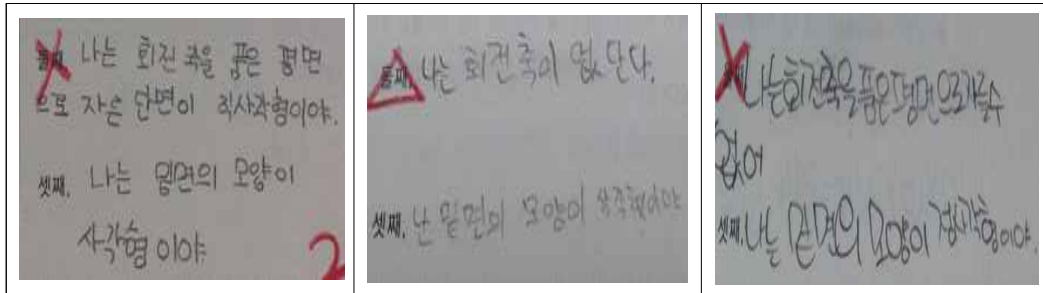 둘째, 나는 회전축을 품은 평면
으로 자른 단면이 직사각형이야.
셋째, 나는 밑면의 모양이
사각형이야.
2
둘째, 나는 회전축이 없단다.
셋째, 난 밑면의 모양이
둘째, 나는 회전축을 품은 평면으로 자를 수
없어
셋째, 나는 밑면의 모양이 정사각형이야.